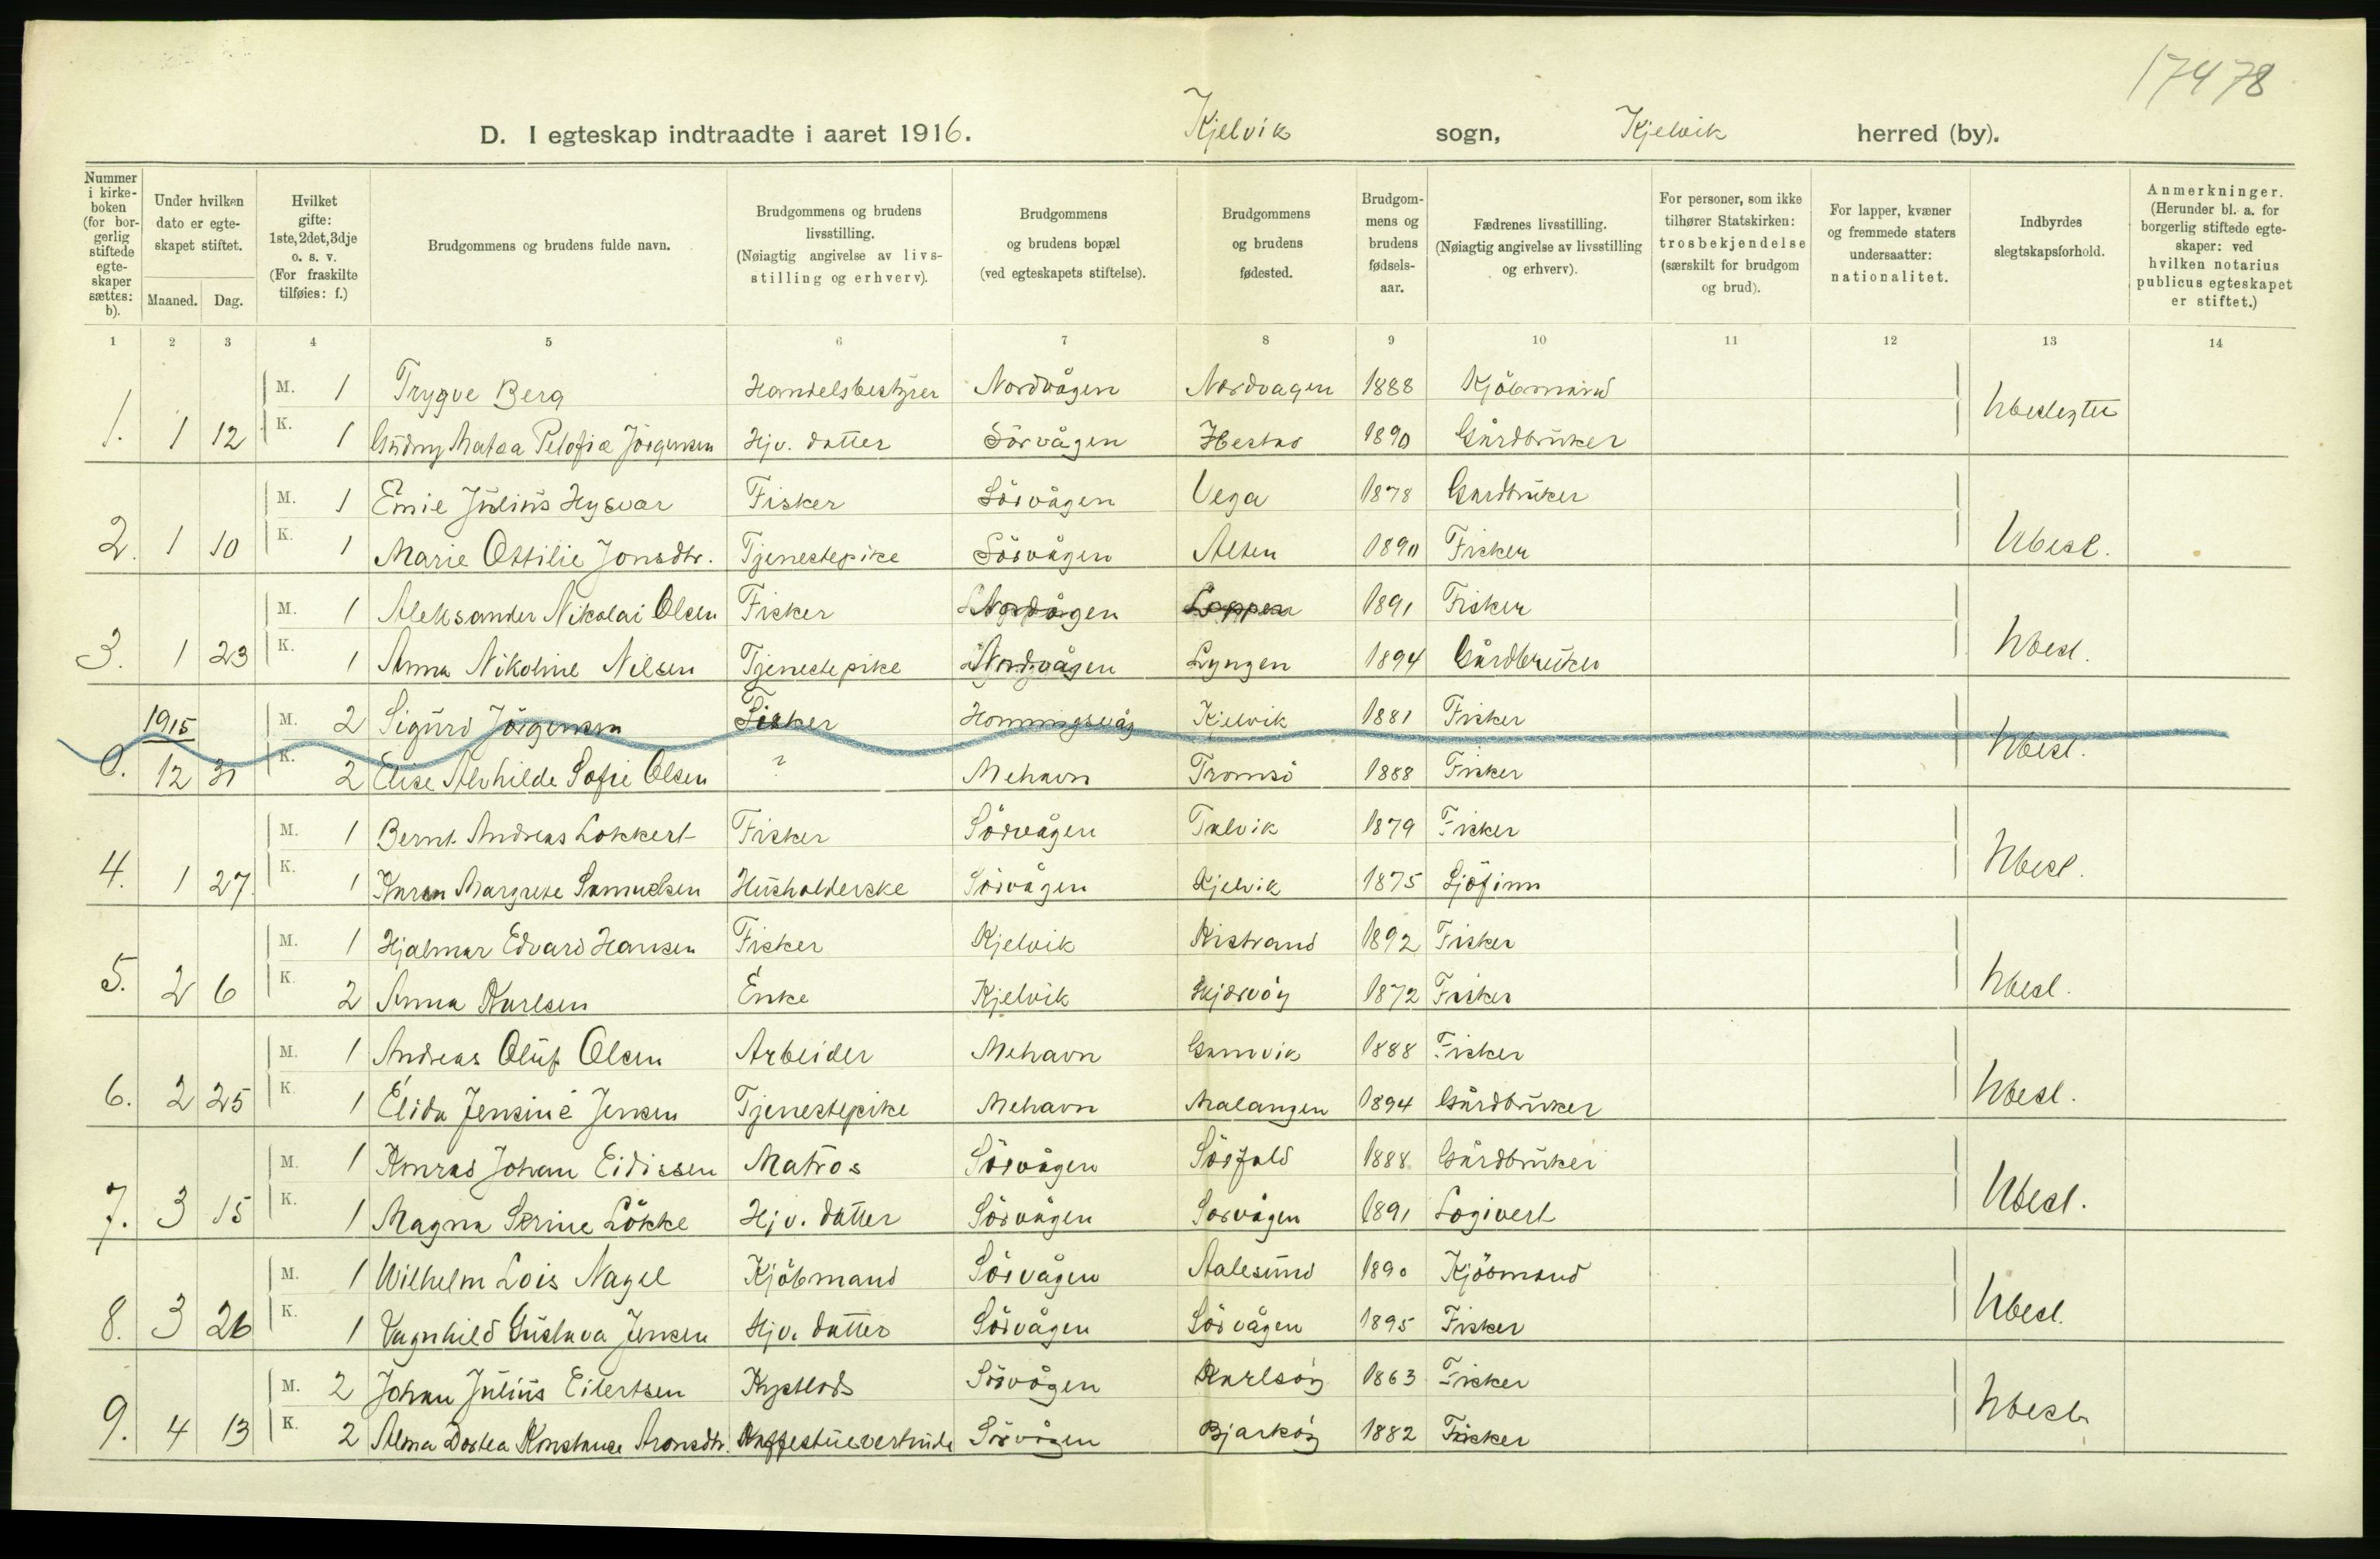 17478
D. I egteskap indtraadte i aaret 1916. Kjelvik sogn, Kjelvik herred (by).
Nummer i kirke-boken (for bor-gerlig stiftede egte-skaper sættes: b).
Under hvilken dato er egte-skapet stiftet.
Maaned. Dag.
Hvilket gifte: 1ste, 2det, 3dje o. s. v. (For fraskilte tilføies: f.)
Brudgommens og brudens fulde navn.
Brudgommens og brudens livsstilling. (Nøiagtig angivelse av livs-stilling og erhverv).
Brudgommens og brudens bopæl (ved egteskapets stiftelse).
Brudgommens og brudens fødested.
Brudgom-mens og brudens fødsels-aar.
Fædrenes livsstilling. (Nøiagtig angivelse av livsstilling og erhverv).
For personer, som ikke tilhører Statskirken: trosbekjendelse (særskilt for brudgom og brud).
For lapper, kvæner og fremmede staters undersaatter: nationalitet.
Indbyrdes slegtskapsforhold.
Anmerkninger. (Herunder bl. a. for borgerlig stiftede egte-skaper: ved hvilken notarius publicus egteskapet er stiftet.)
1 2 3 4 5 6 7 8 9 10 11 12 13 14
M. 1 Trygve Berg Handelsbestyrer Nordvågen Nordvagen 1888 Kjöbmand
1. 1 12 K. 1 Jörgensen Hjv. datter Sörvågen 1890 Gårdbrüker
M. 1 Emil Jülius Hysvær Fisker Sörvågen Vega 1878 Gårdbrüker
2. 1 10 K. 1 Marie Ottilie Jonsdtr. Tjenestepike Sörvågen Alten 1890 Fisker Ubesl.
M. 1 Aleksander Nikolai Olsen Fisker Nordvågen Loppen 1891 Fisker
3. 1 23 K. 1 Anna Nikoline Nilsen Tjenestepike Nordvågen Lyngen 1894 Gårdbrüker Ubesl.
1915 M. 2 Sigürd Jörgensen Fisker Honningsvåg Kjelvik 1881 Fisker
0. 12 31 K. 2 Elise Alvhilde Sofie Olsen ? Mehavn Tromsö 1888 Fisker Ubesl.
M. 1 Bernt Andreas Lokkert Fisker Sörvågen Talvik 1879 Fisker
4. 1 27. K. 1 Karen Margrete Samuelsen Hüsholderske Sörvågen Kjelvik 1875 Sjöfinn Ubesl.
M. 1 Hjalmar Edvard Hansen Fisker Kjelvik Kistrand 1892 Fisker
5. 2 6 K. 2 Anna Karlsen Enke Kjelvik Skjervöy 1872 Fisker Ubesl.
M. 1 Andreas Olüf Olsen Arbeider Mehavn Gamvik 1888 Fisker
6. 2 25 K. 1 Elida Jensine Jensen Tjenestepike Mehavn Malangen 1894 Gårdbrüker Ubesl.
M. 1 Konrad Johan Eidissen Matros Sörvågen Sörfold 1888 Gårdbrüker
7. 3 15 K. 1 Magna Serine Lökke Hjv. datter Sörvågen Sörvågen 1891 Logivert Ubesl.
M. 1 Wilhelm Lois Nagel Kjöbmand Sörvågen Aalesünd 1890 Kjöbmand
8. 3 26 K. 1 Vagnhild Güstava Jensen Hjv. datter Sörvågen Sörvågen 1895 Fisker Ubesl.
M. 2 Johan Jülius Eilertsen Kystlods Sörvågen Karlsöy 1863 Fisker
9. 4 13 K. 2 Alma Dortea Konstanse Aronsdtr. Kaffestüevertinde Sörvågen Bjarköy 1882 Fisker Ubesl.